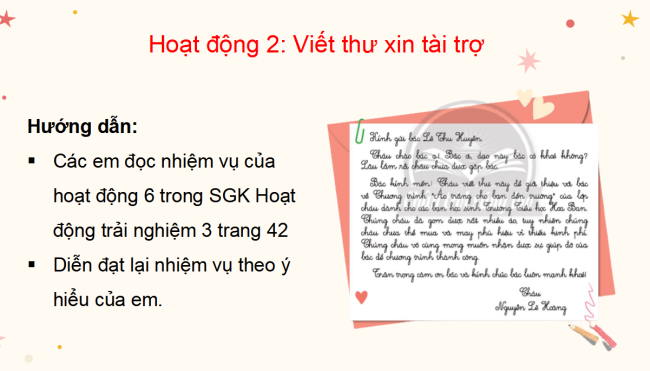 Hoạt động 2: Viết thư xin tài trợ
Hướng dẫn:
▪ Các em đọc nhiệm vụ của
hoạt động 6 trong SGK Hoạt
động trải nghiệm 3 trang 42
▪ Diễn đạt lại nhiệm vụ theo ý
hiểu của em.
Kính gửi bác Lê Thu Huyền,
Cháu chào bác ạ! Bác ơi, dạo này bác có khoẻ không?
Lâu lắm rồi cháu chưa được gặp bác.
Bác kính mến! Cháu viết thư này để giới thiệu với bác
về Chương trình "Áo trắng cho bạn đến trường" của lớp
cháu dành cho các bạn học sinh Trường Tiểu học Hoa Ban.
Chúng cháu đã gom được rất nhiều áo, tuy nhiên chúng
cháu chưa thể mua và may phù hiệu vì thiếu kinh phí.
Chúng cháu vô cùng mong muốn nhận được sự giúp đỡ của
bác để chương trình thành công.
Trân trọng cảm ơn bác và kính chúc bác luôn mạnh khoẻ!
Cháu
Nguyễn Lê Hoàng